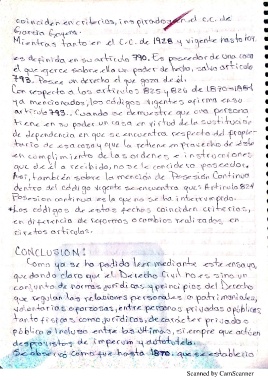 coinciden en criterios, inspirados en el c.c. de
García Goyena.
Mientras tanto en el C.C. de 1928 y vigente hasta hoy
es definida en su artículo 790. Es poseedor de una cosa
el que ejerce sobre ella un poder de hecho, salvo artículo
793. Posee un derecho el que goza de él.
Con respecto a los artículos 825 y 826 de 1870-1884
ya mencionados, los códigos vigentes afirma en su
artículo 793. Cuando se demuestre que una persona
tiene en su poder una cosa en virtud de la situación
de dependencia en que se encuentra respecto del propie-
tario de esa cosa y que la retiene en provecho de éste
en cumplimiento de las ordenes e instrucciones
que de él a recibido, no se le considera poseedor.
Así, también sobre la mención de Posesión Continua
dentro del código vigente se encuentra que: Artículo 824
Posesión continua es la que no se ha interrumpido.
Los códigos de estas fechas coinciden criterios,
en diferencia de reformas o cambios realizados en
ciertos artículos.
CONCLUSION:
Como ya se ha podido leer mediante este ensayo,
quedando claro que el Derecho Civil no es sino un
conjunto de normas jurídicas y principios del Derecho
que regulan las relaciones personales o patrimoniales,
voluntarias o forzosas, entre personas privadas o públicas,
tanto físicas como jurídicas, de carácter privado o
público e incluso entre las últimas, siempre que actúen
desprovistas de imperium y autotutela.
Se observó como fue hasta 1870, que se establecio
Scanned by CamScanner